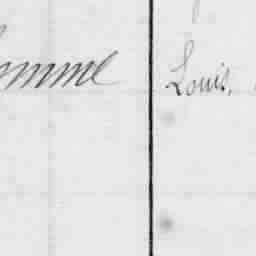 omme Louis,